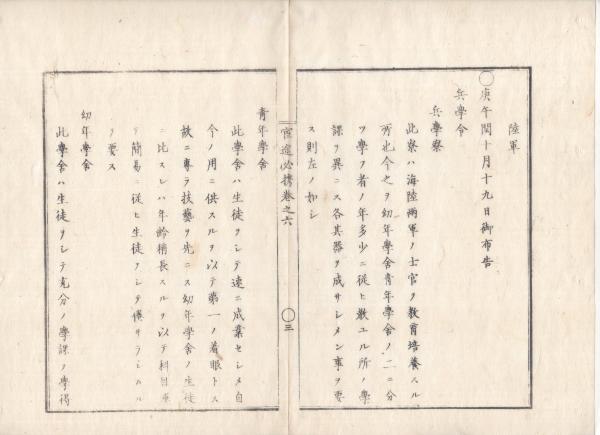 陸軍
○庚午閏十月十九日御布告
兵學令
兵學寮
此寮ハ海陸兩軍ノ士官ヲ敎育培養スル
所也今之ヲ幼年學舍靑年學舍ノ二ニ分
ツ學フ者ノ年多少ニ從ヒ敎エル所ノ學
課ヲ異ニス各其器ヲ成サシメン事ヲ要
ス則左ノ如シ
官途必携卷之六
○三
靑年學舍
此學舍ハ生徒ヲシテ速ニ成業セシメ自
今ノ用ニ供スルヲ以テ第一ノ着眼トス
故ニ專ラ技藝ヲ先ニス幼年學舍ノ生徒
ニ比スレハ年齡稍長スルヲ以テ科目
ヲ簡易ニ從ヒ生徒ヲシテ倦サラシムル
ヲ要ス
幼年學舍
此學舍ハ生徒ヲシテ充分ノ學課ヲ學得